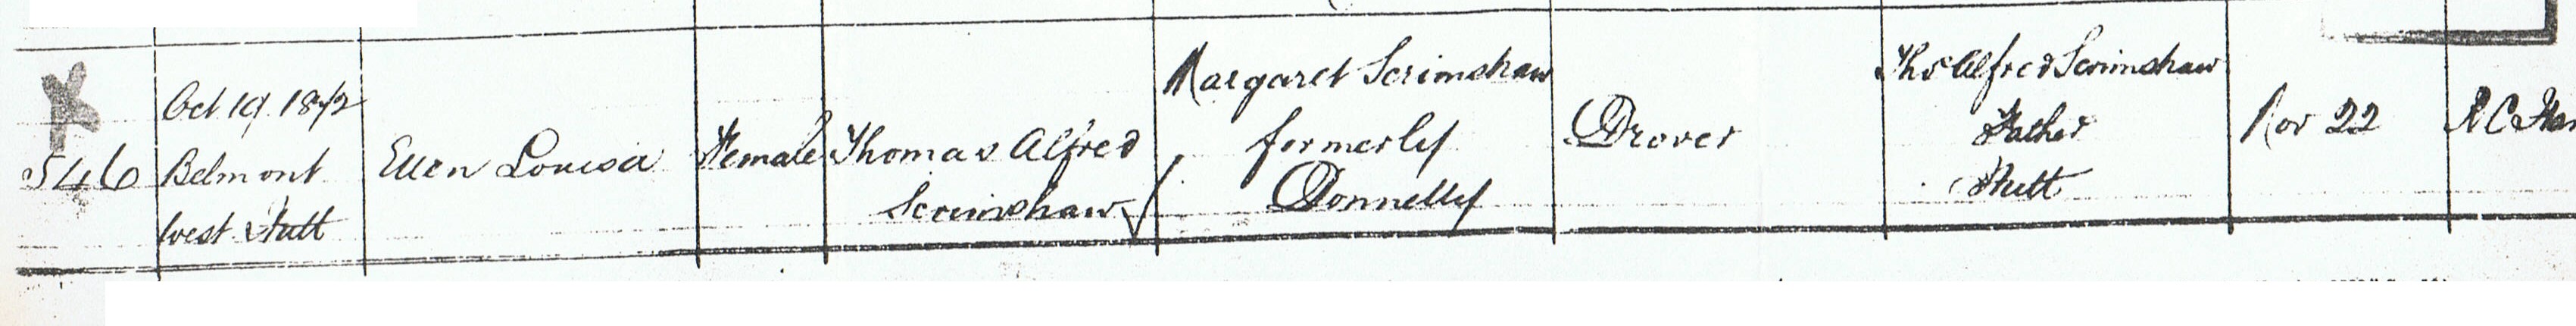 546
Oct 19 1872
Belmont
West Hutt
Ellen Louisa
Female
Thomas Alfred
Scrimshaw
Margaret Scrimshaw
formerly
Donnelly
Drover
Thos Alfred Scrimshaw
Father
Hutt
Nov 22
R C